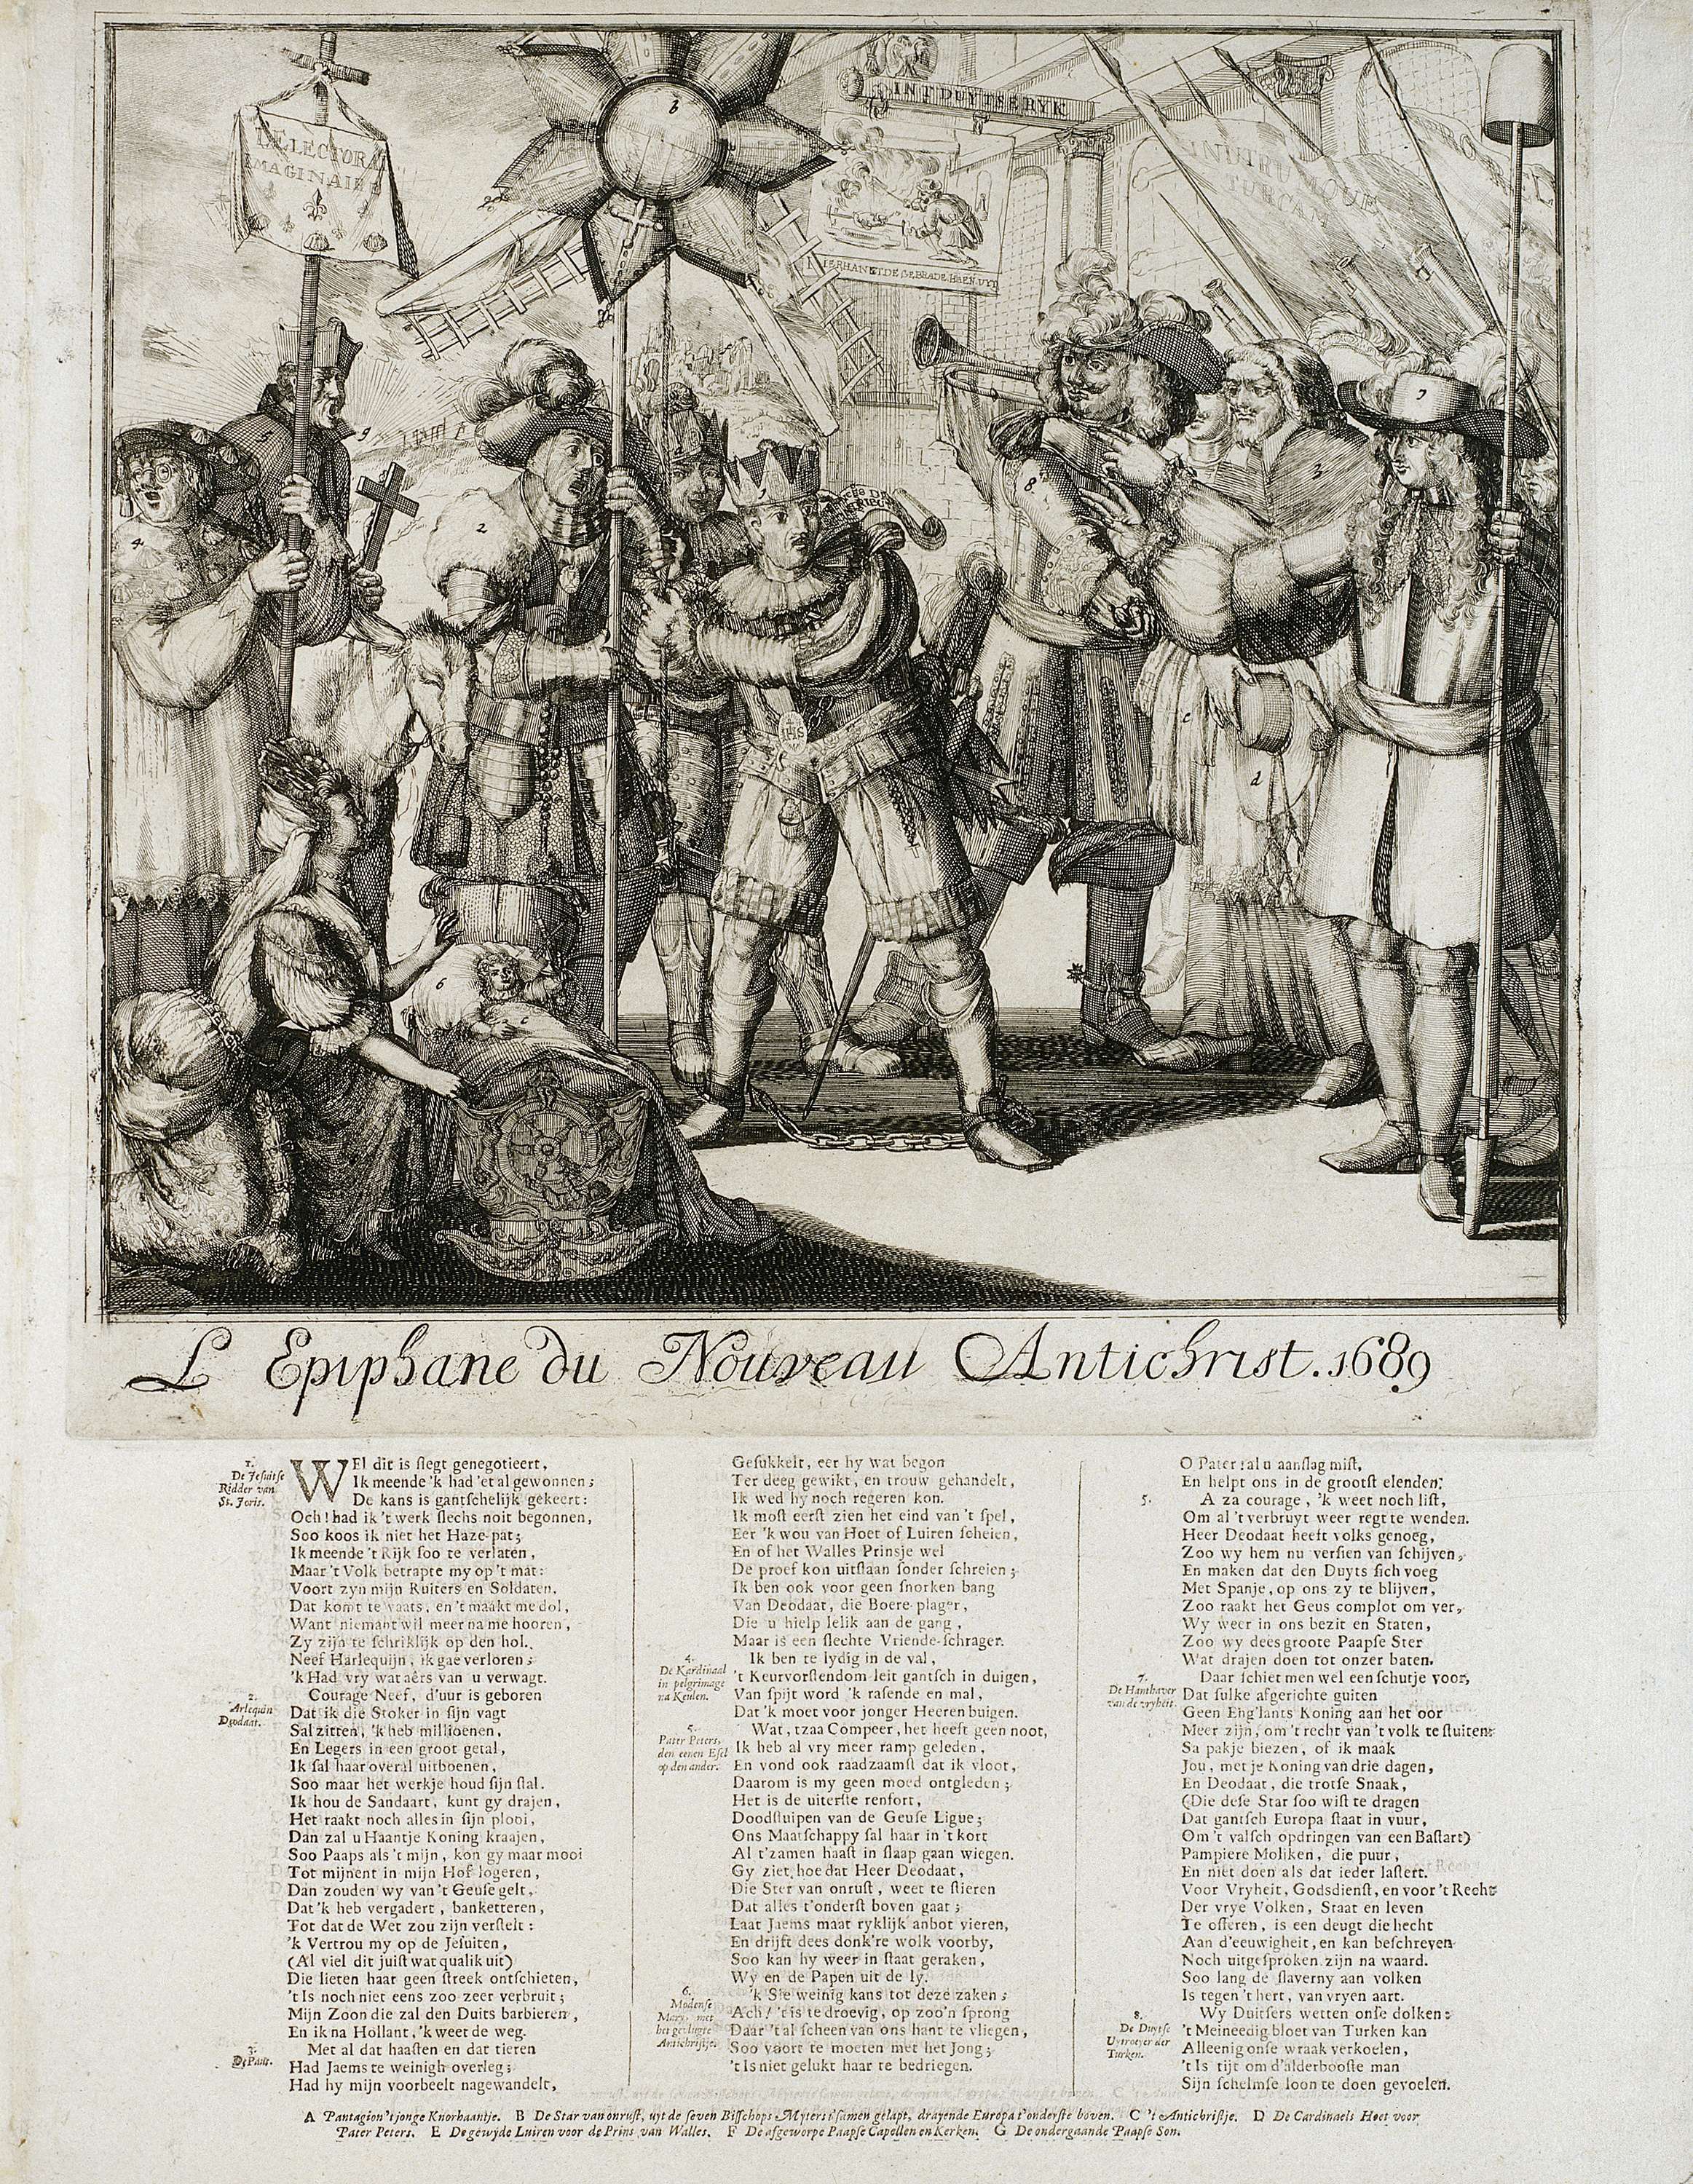 b
INT DUYTSE RYK
L'ELECTORA
IMAGINAIRE
HIER HANGT DE GEBRADE HAEN UYT
TURCAM
5
9
2
4
8
3
7
IHS
c
d
6
c
L Epiphane du Nouveau Antichrist. 1689
1.
De Jesuitse
Ridder van
St. Joris.
WEl dit is slegt genegotieert,
Ik meende 'k had 'et al gewonnen;
De kans is gantschelijk gekeert:
Och! had ik 't werk slechs noit begonnen,
Soo koos ik niet het Haze-pat;
Ik meende 't Rijk soo te verlaten,
Maar 't Volk betrapte my op 't mat:
Voort zyn mijn Ruiters en Soldaten.
Dat komt te vaats, en 't maakt me dol,
Want niemant wil meer na me hooren,
Zy zijn te schriklijk op den hol.
Neef Harlequijn, ik gae verloren;
'k Had vry wat aêrs van u verwagt.
2.
Arlequin
Deodaat.
Courage Neef, d'uur is geboren
Dat ik die Stoker in sijn vagt
Sal zitten, 'k heb millioenen,
En Legers in een groot getal,
Ik sal haar overal uitboenen,
Soo maar het werkje houd sijn stal.
Ik hou de Sandaart, kunt gy drajen,
Het raakt noch alles in sijn plooi,
Dan zal u Haantje Koning kraajen,
Soo Paaps als 't mijn, kon gy maar mooi
Tot mijnent in mijn Hof logeren,
Dan zouden wy van 't Geuse gelt,
Dat 'k heb vergadert, banketteren,
Tot dat de Wet zou zijn verstelt:
'k Vertrou my op de Jesuiten,
(Al viel dit juist wat qualik uit)
Die lieten haar geen streek ontschieten,
't Is noch niet eens zoo zeer verbruit;
Mijn Zoon die zal den Duits barbieren,
En ik na Hollant, 'k weet de weg.
3.
De Paus.
Met al dat haasten en dat tieren
Had Jaems te weinigh overleg;
Had hy mijn voorbeelt nagewandelt,
Gesukkelt, eer hy wat begon
Ter deeg gewikt, en trouw gehandelt,
Ik wed hy noch regeren kon.
Ik most eerst zien het eind van 't spel,
Eer 'k wou van Hoet of Luiren scheien,
En of het Walles Prinsje wel
De proef kon uitstaan sonder schreien;
Ik ben ook voor geen snorken bang
Van Deodaat, die Boere-plager,
Die u hielp lelik aan de gang,
Maar is een slechte Vriende-schrager.
4.
De Kardinaal
in pelgrimage
na Keulen.
Ik ben te lydig in de val,
't Keurvorstendom leit gantsch in duigen,
Van spijt word 'k rasende en mal,
Dat 'k moet voor jonger Heeren buigen.
5.
Pater Peters,
den eenen Esel
op den ander.
Wat, tzaa Compeer, het heeft geen noot,
Ik heb al vry meer ramp geleden,
En vond ook raadzaamst dat ik vloot,
Daarom is my geen moed ontgleden;
Het is de uiterste renfort,
Doodstuipen van de Geuse Ligue;
Ons Maatschappy sal haar in 't kort
Al t'zamen haast in slaap gaan wiegen.
Gy ziet, hoe dat Heer Deodaat,
Die Ster van onrust, weet te stieren
Dat alles t'onderst boven gaat;
Laat Jaems maat ryklijk anbot vieren,
En drijft dees donk're wolk voorby,
Soo kan hy weer in staat geraken,
Wy en de Papen uit de ly.
6.
Modense
Mary, met
het gedugte
Antichristje.
'k Sie weinig kans tot deze zaken;
Ach! 't is te droevig, op zoo'n sprong
Daar 't al scheen van ons hant te vliegen,
Soo voort te moeten met het Jong;
't Is niet gelukt haar te bedriegen.
O Pater: al u aanslag mist,
En helpt ons in de grootst elenden:
5.
A za courage, 'k weet noch list,
Om al 't verbruyt weer regt te wenden.
Heer Deodaat heeft volks genoeg,
Zoo wy hem nu versien van schijven,
En maken dat den Duyts sich voeg
Met Spanje, op ons zy te blijven,
Zoo raakt het Geus complot om ver,
Wy weer in ons bezit en Staten,
Zoo wy dees groote Paapse Ster
Wat drajen doen tot onzer baten.
7.
De Hanthaver
van de vryheit.
Daar schiet men wel een schutje voor,
Dat sulke afgerichte guiten
Geen Eng'lants Koning aan het oor
Meer zijn, om 't recht van 't volk te sluiten:
Sa pakje biezen, of ik maak
Jou, met je Koning van drie dagen,
En Deodaat, die trotse Snaak,
(Die dese Star soo wist te dragen
Dat gantsch Europa staat in vuur,
Om 't valsch opdringen van een Bastart)
Pampiere Moliken, die puur,
En niet doen als dat ieder lastert.
Voor Vryheit, Godsdienst, en voor 't Recht
Der vrye Volken, Staat en leven
Te offeren, is een deugt die hecht
Aan d'eeuwigheit, en kan beschreven
Noch uitgesproken zijn na waard.
Soo lang de slaverny aan volken
Is tegen 't hert, van vryen aart.
8.
De Duytse
Uytroyer der
Turken.
Wy Duitsers wetten onse dolken:
't Meineedig bloet van Turken kan
Alleenig onse wraak verkoelen,
't Is tijt om d'alderbooste man
Sijn schelmse loon te doen gevoelen.
A Pantagion 't jonge Knorhaantje. B De Star van onrust, uyt de seven Bisschops Myters t'samen gelapt, drayende Europa t'onderste boven. C 't Antichristje. D De Cardinaels Hoet voor
Pater Peters. E De gewyde Luiren voor de Prins van Walles. F De afgeworpe Paapse Capellen en Kerken. G De ondergaande Paapse Son.